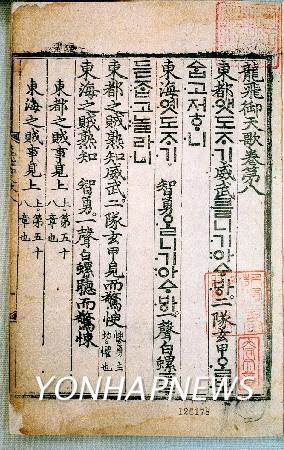 龍飛御天歌卷第八
東都앳도ᄌᆞ기威武를니기아ᅀᆞᄫᅡ二隊玄甲ᄋᆞᆯ보
ᅀᆞᆸ고저ᄒᆞ니
東海옛도ᄌᆞ기 智勇ᄋᆞᆯ니기아ᅀᆞᄫᅡ一聲白螺ᄅᆞᆯ
듣ᄌᆞᆸ고놀라니
東都之賊熟知威武二隊玄甲見而驚
東海之賊熟知 智勇一聲白螺聽而驚悚
東都之賊事見上 上第五十八章也
東海之賊事見上 上第五十八章也
YONHAPNEWS